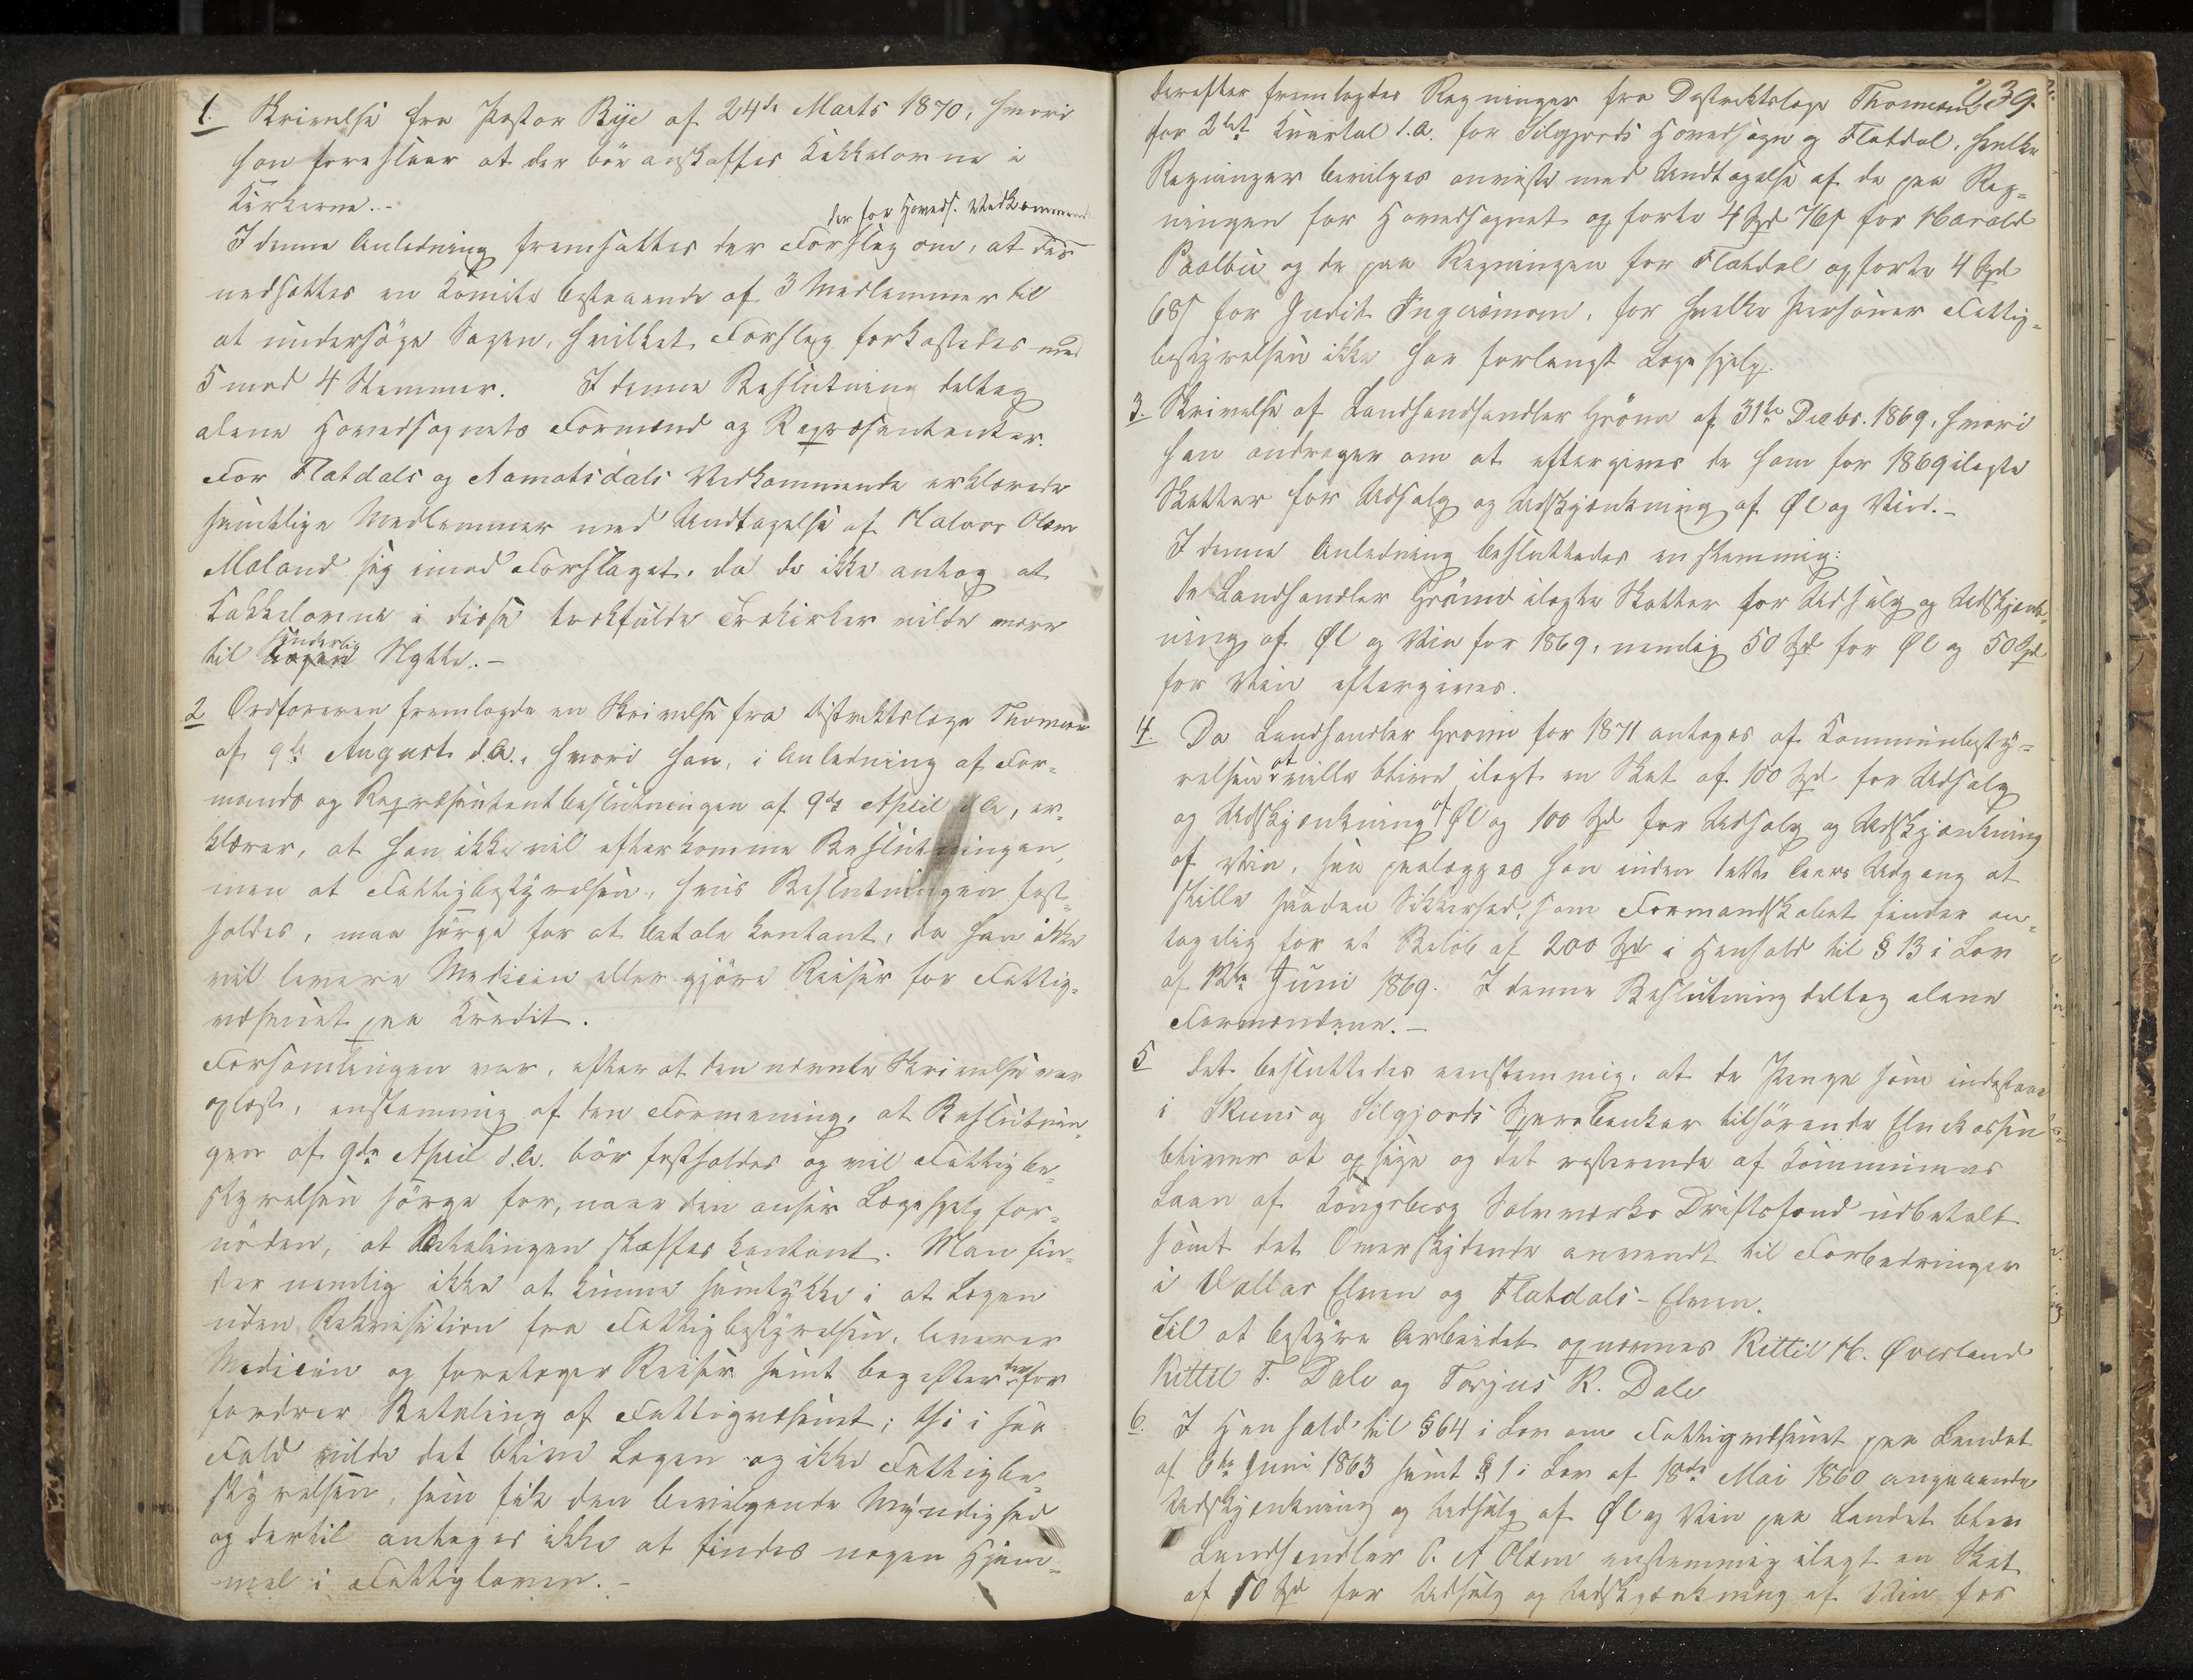 1. Skrivelse fra Pastor Bÿe af 24de Marts 1870, hvori
han foreslaar at der bör anskaffes Kakkelovne i
Kirkerne.-
der for Hoveds. Vedkommende
I denne Anledning fremsattes der Forslag om, at der
nedsattes en Komite bestaaende af 3 Medlemmer til
at undersöge Sagen, hvilket Forslag forkastedes med
5 mod 4 Stemmer. I denne Beslutning deltog
alene Hovedsognets Formænd og Repræsentanter.
For Flatdals og Aamotsdals Vedkommende erklærede
samtlige Medlemmer med Undtagelse af Halvor Olsen
Moland sig imod Forslaget, da de ikke antog at
Kakkelovne i disse trekfulde Trekirker vilde være
til synderlig Nytte.-
2 Ordföreren fremlagde en Skrivelse fra Distriktslæge Thomesen
af 9de August d.A., hvori han, i Anledning af For-
mands og Repræsentantbeslutningen af 9de April d.A, er-
klærer, at han ikke vil efterkomme Beslutningen,
men at Fattigbestyrelsen, hvis Beslutningen fast-
holdes, maa sörge for at betale kontant, da han ikke
vil levere Medicin eller gjöre Reiser for Fattig-
væsenet paa Kredit.
Forsamlingen var, efter at den nævnte Skrivelse var
oplæst, enstemmig af den Formening, at Beslutnin-
gen af 9de April d.A. bör fastholdes og vil Fattigbe-
styrelsen sörge for, naar den anser Lægehjelp for-
nöden, at Betalingen skaffes kontant. Man fin-
der nemlig ikke at kunne samtykke i at Lægen
uden Rekvisition fra Fattigbestyrelsen, leverer
Medicin og foretager Reiser samt bagefter derfor
fordrer Betaling af Fattigvæsenet; thi i saa
Fald vilde det blive Lægen og ikke Fattigbe-
styrelsen, som fik den bevilgende Myndighed
og dertil antages ikke at findes nogen Hjem-
mel i Fattigloven.-
239.
Derefter fremlagdes Regninger fra Distriktslæge Thomesen
for 2det Kvartal d.A. for Silgjords Hovedsogn og Flatdal, hvilke
Regninger bevilges anviste med Undtagelse af de paa Reg-
ningen for Hovedsognet opförte 4 Spd 76 s for Harald
Paalbu og de paa Regningen for Flatdal opförte 4 Spd
68 s for Judit Ingersmoen, for hvilke Personer Fattig-
bestyrelsen ikke har forlangt Lægehjelp.
3. Skrivelse af Landhandler Gröm af 31te Decbr. 1869, hvori
han andrager om at eftergives de ham for 1869 ilagte
Skatter for Udsalg og Udskjænkning af Øl og Vin.-
I denne Anledning besluttedes enstemmig:
De Landhandler Gröm ilagte Skatter for Udsalg og Udskjænk-
ning af Øl og Vin for 1869, nemlig 50 Spd for Øl og 50 Spd
for Vin eftergives.
4. Da Landhandler Gröm for 1871 antages af Kommunebesty-
relsen at ville blive ilagt en Skat af 100 Spd for Udsalg
og Udskjænkning af Øl og 100 Spd for Udsalg og Udskjænkning
af Vin, saa paalægges han inden dette Aars Udgang at
stille saadan Sikkerhed, som Formandskabet finder an-
tagelig for et Belöb af 200 Spd i Henhold til § 13 i Lov
af 12te Juni 1869. I denne Beslutning deltog alene
Formændene.-
5 Det besluttedes eenstemmig, at de Penge som indestaar
i Skiens og Silgjords Sparebanker tilhörende Elvekassen
bliver at opsige og det resterende af Kommunens
Laan af Kongsberg Sölvværks Driftsfond udbetalt
samt det Overskydende anvendt til Forbedringer
i Vallar Elven og Flatdals-Elven.
Til at bestyre Arbeidet opnævnes Kittil H. Øverland
Kittil T. Dale og Torjus K. Dale
6. I Henhold til § 64 i Lov om Fattigvæsenet paa Landet
af 6te Juni 1863 samt § 1 i Lov af 18de Mai 1860 angaaende
Udskjænkning og Udsalg af Øl og Vin paa Landet blev
Landhandler C. A Olsen enstemmig ilagt en Skat
af 50 Spd for Udsalg og Udskjænkning af Vin for